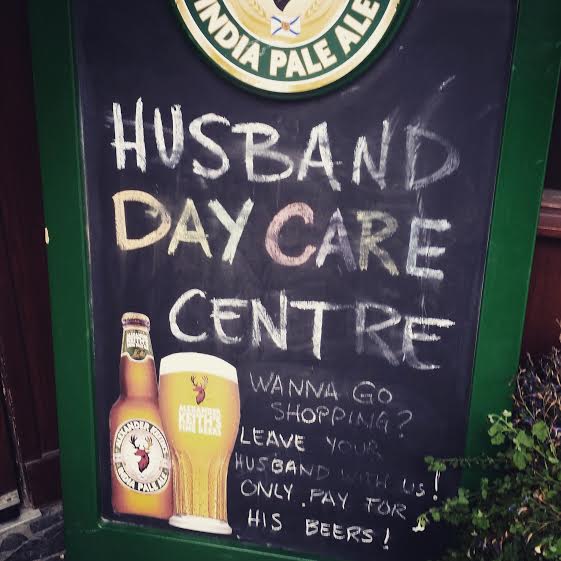 INDIA PALE ALE
HUSBAND
DAY CARE
CENTRE
WANNA GO
SHOPPING?
LEAVE YOUR
HUSBAND WITH US!
ONLY PAY FOR
HIS BEERS!
ALEXANDER
KEITH'S
FINE BEERS
ALEXANDER KEITH'S
INDIA PALE ALE